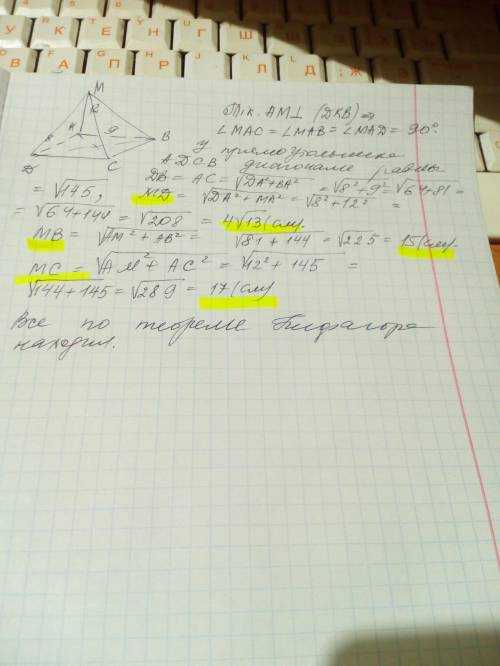 M
K
A
9
B
D
C
Тік. AM⊥ (DKB) ⇒
∠MAC = ∠MAB = ∠MAD = 90°.
У прямоугольника
ADCB диагонали равны
DB = AC = √DA²+BA² = √8²+9² = √64+81 =
= √145, MD = √DA²+MA² = √8²+12² =
= √64+144 = √208 = 4√13 (см).
MB = √AM²+AB² = √81+144 = √225 = 15 (см).
MC = √AM²+AC² = √12²+145 =
√144+145 = √289 = 17 (см)
Все по теореме Пифагора
находил.